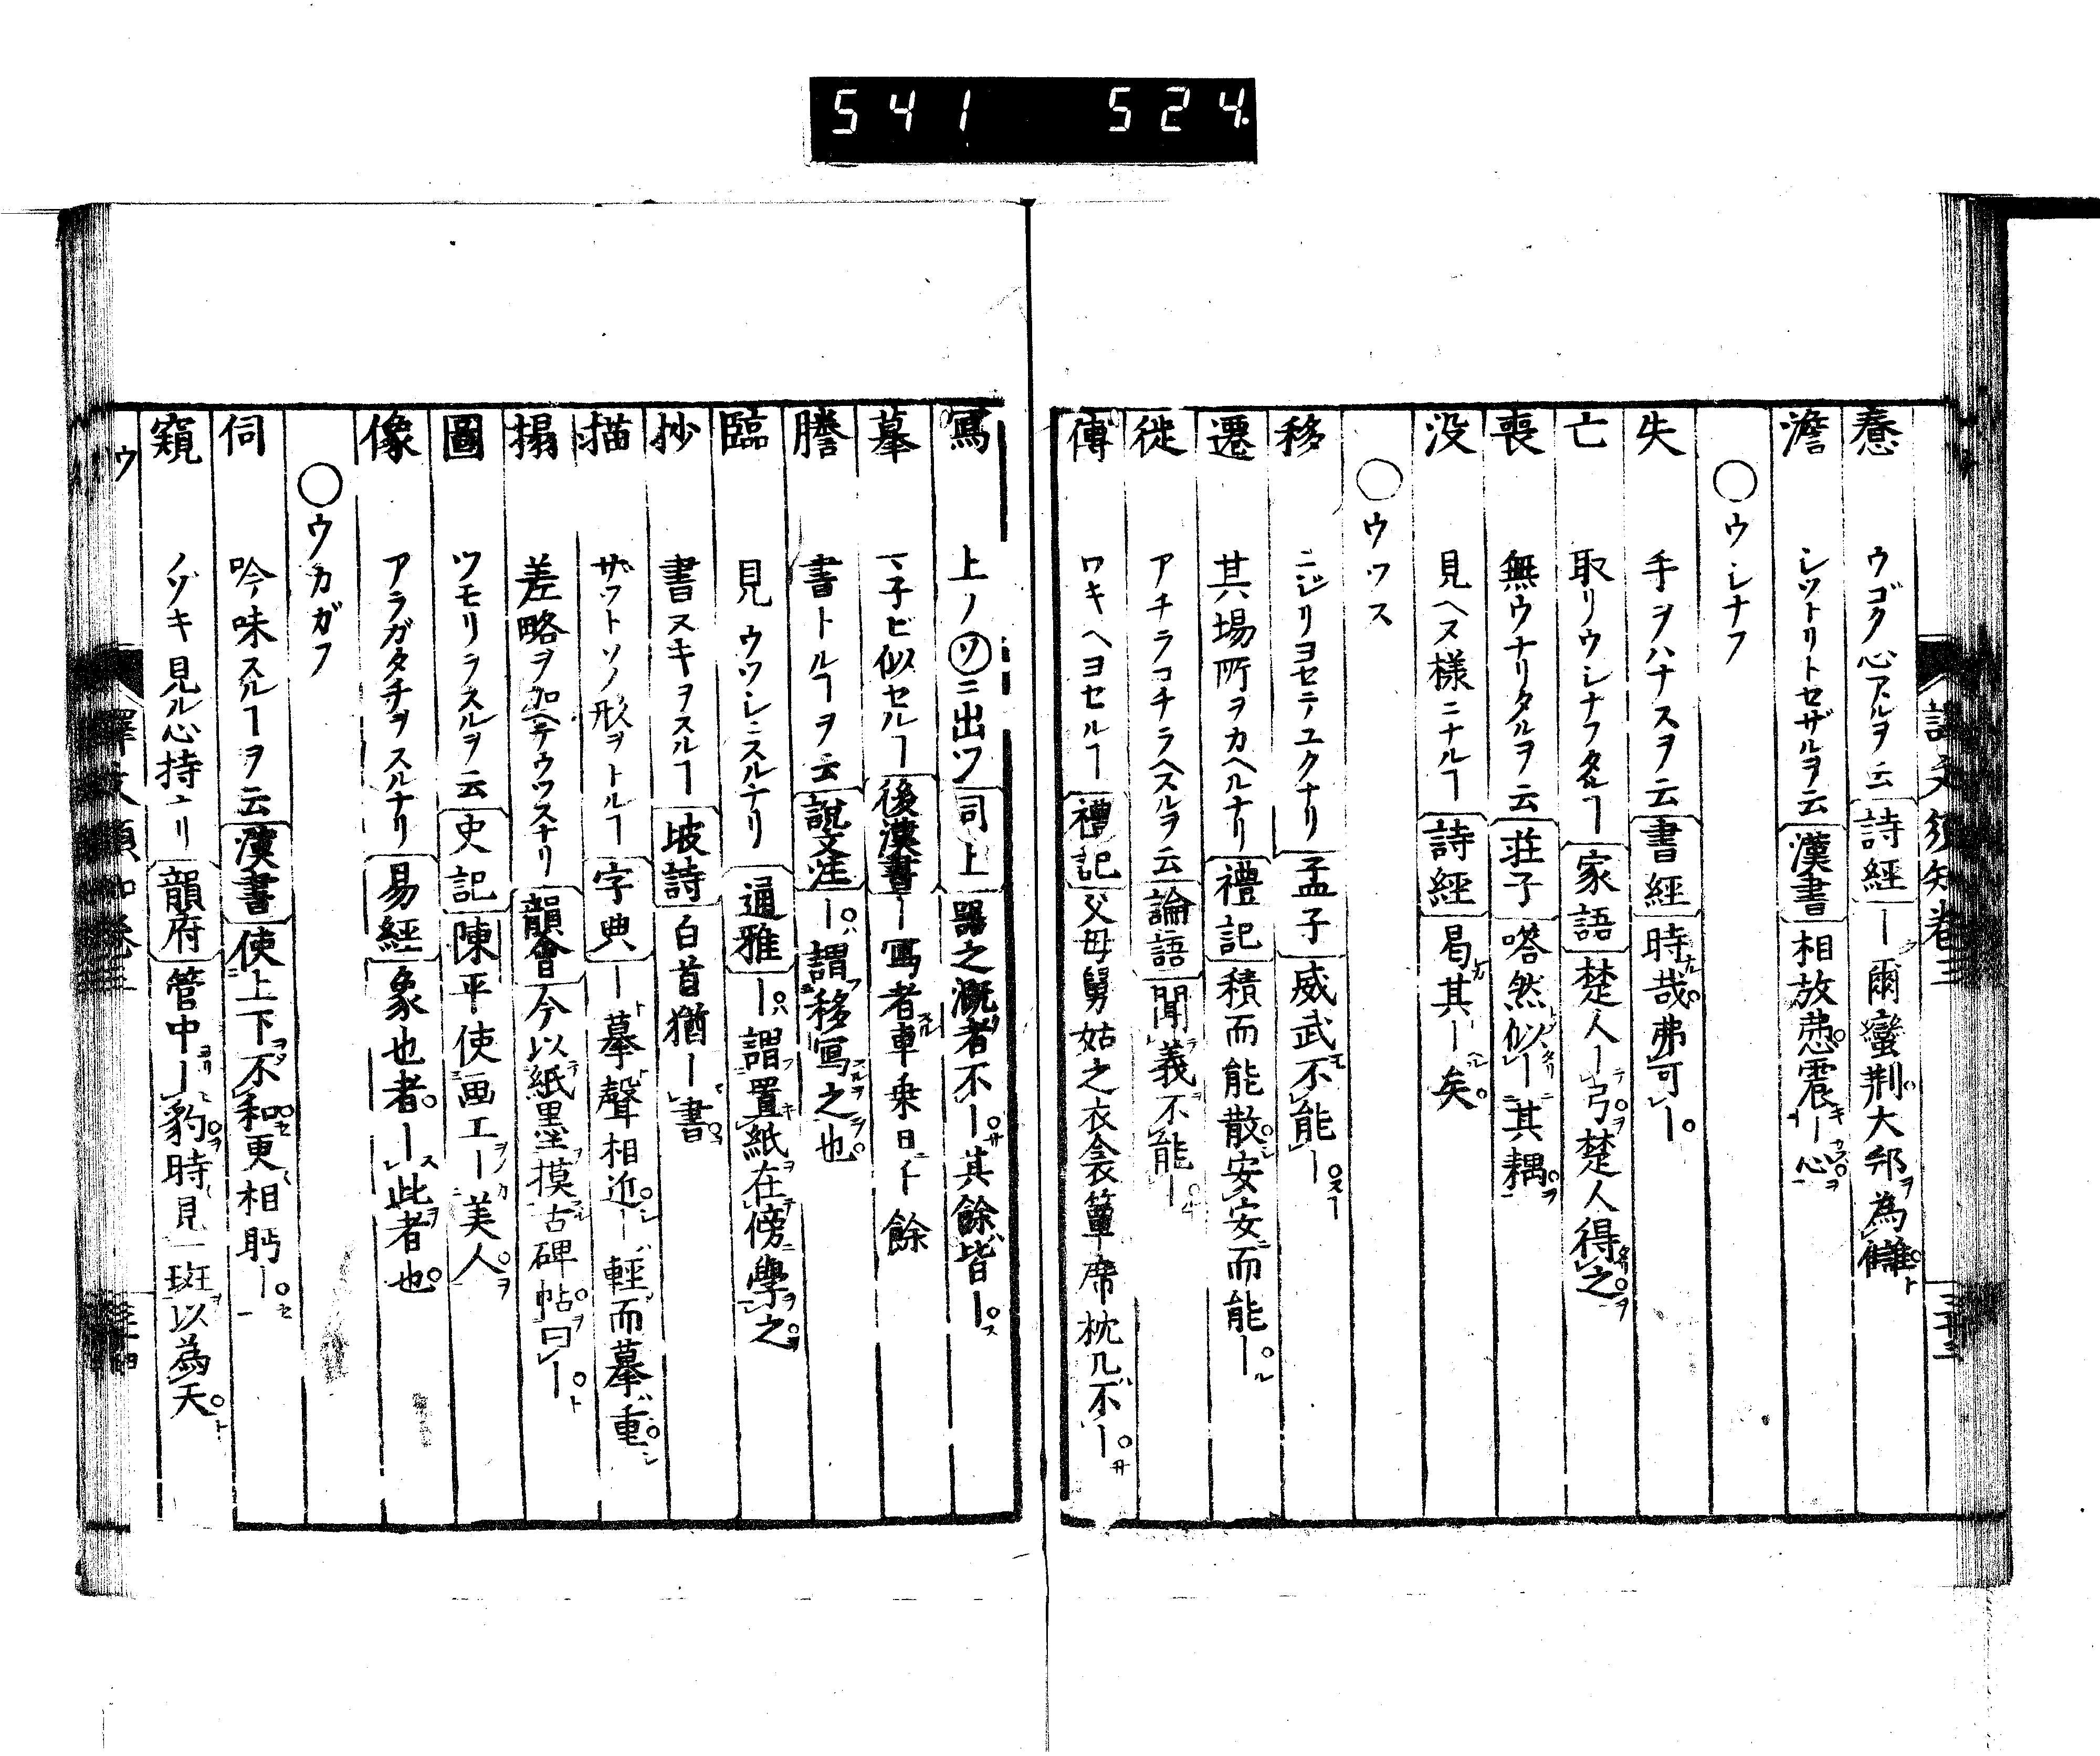 541 524
譯文須知卷三
惷 ウゴク心アルヲ云 詩經 ー爾蠻荆大邦為讎
澹 シツトリトセザルヲ云 漢書 相放悪震ー心
○ウシナフ
失 手ヲハナスヲ云 書經 時哉弗可ー
亡 取リウシナフタルヿ 家語 楚人ー弓楚人得之
喪 無ウナリタルヲ云 莊子 嗒然似ー其耦
没 見ヘヌ様ニナルヿ 詩經 曷其ー矣
○ウツス
移 ニジリヨセテユクナリ 孟子 威武不能ー
遷 其場所ヲカヘルナリ 禮記 積而能散安安而能ー
徙 アチラコチラヘスルヲ云 論語 聞義不能ー
傳 ワキヘヨセルヿ 禮記 父母舅姑之衣衾簟席枕几不ー
寫 上ノソニ出ツ 同上 器之溉者不ー其餘皆ー
摹 マ子ビ似セルヿ 後漢書 ー寫者車乗日千餘
謄 書トルヿヲ云 說文注 ー謂移寫之也
臨 見ウツシニスルナリ 通雅 ー謂置紙在傍學之
抄 書スキヲスルヿ 坡詩 白首猶ー書
描 ザツトソノ形ヲトルヿ 字典 ー摹聲相近ー輕而摹重
搨 差略ヲ加ヘテウツスナリ 韻會 今以紙墨摸古碑帖曰ー
圖 ツモリラスルヲ云 史記 陳平使画工ー美人
像 アラガタチヲスルナリ 易經 象也者ー此者也
○ウカガフ
伺 吟味スルヿヲ云 漢書 使上下不和更相眄ー
窺 ノゾキ見ル心持ナリ 韻府 管中ー豹時見一斑以為天
ウ 譯文須知卷三